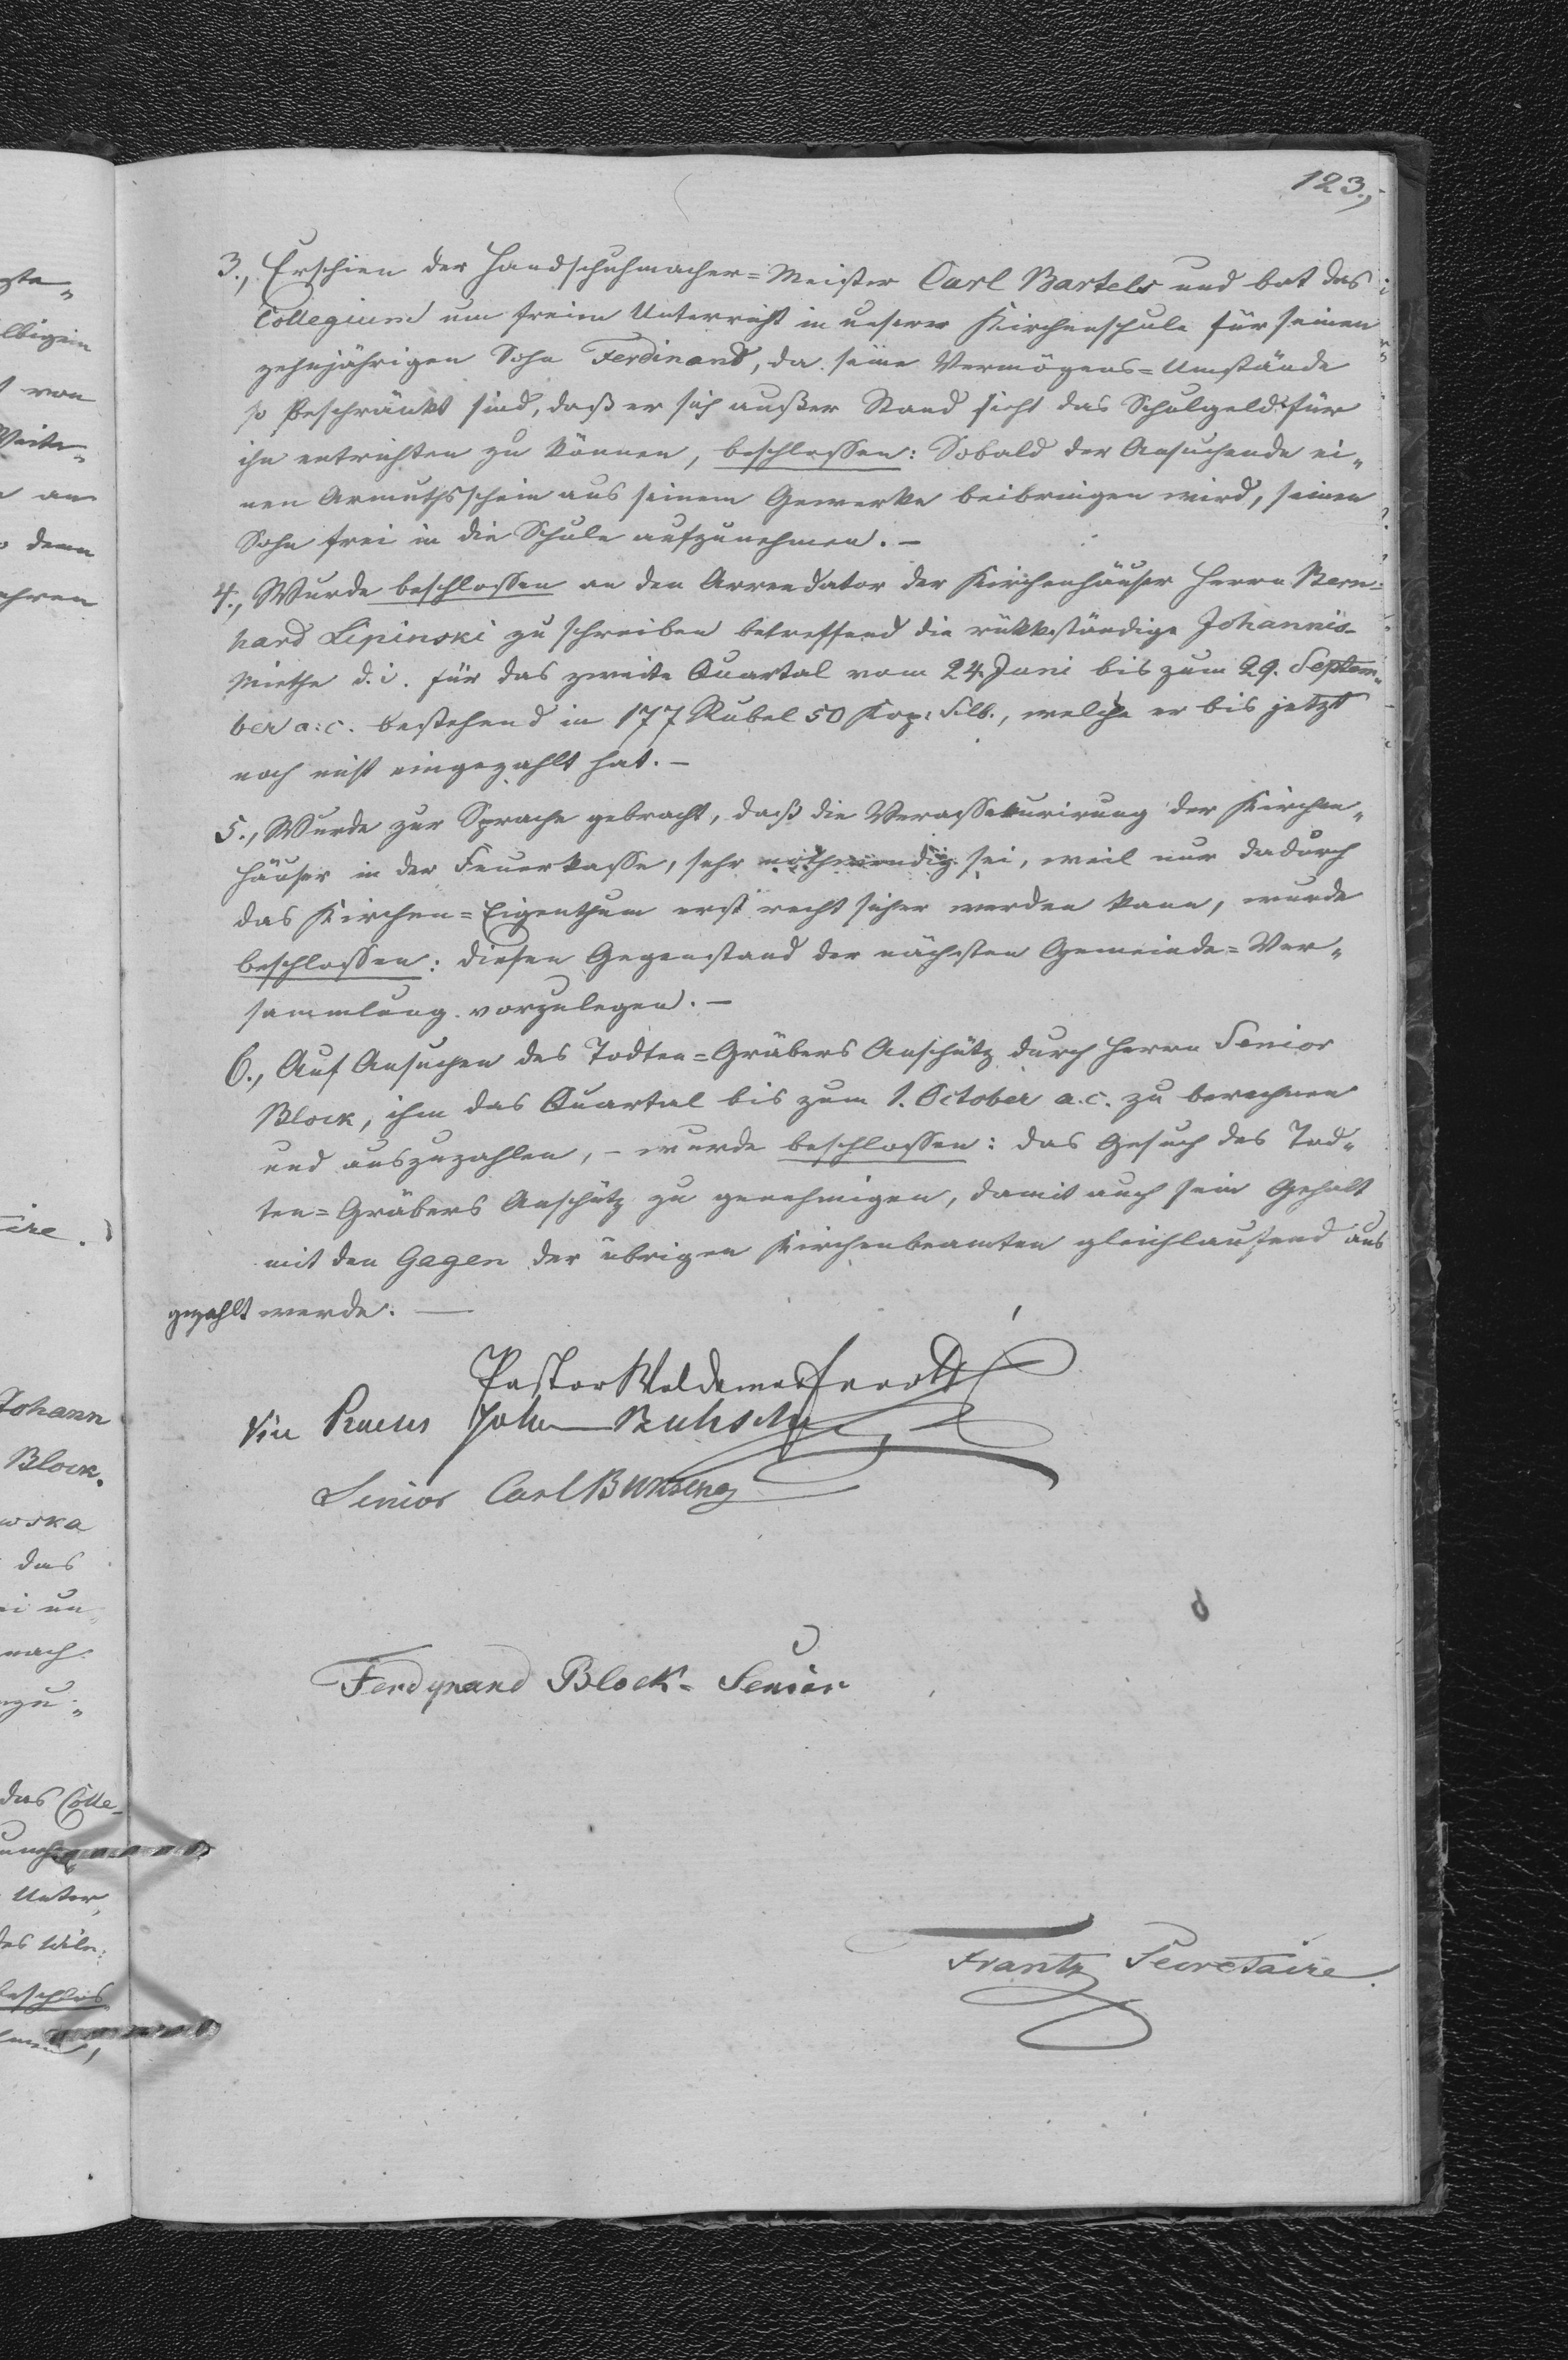 123.,
3., Erschien der Handschuhmacher=Meister Carl Bartels und bat das
Collegium um freien Unterricht in unserer Kirchenschule für seinen
zehnjährigen Sohn Ferdinand, da seine Vermögens=Umstände
so beschränkt sind, daß er sich außer Stand sieht das Schulgeld für
ihn entrichten zu können, beschlossen: Sobald der Ansuchende ei„
nen Armuthsschein aus seinem Gewerke beibringen wird, seinen
Sohn frei in die Schule aufzunehmen. –
4., Wurde beschlossen an den Arrendator der Kirchenhäuser Herrn Bern=
hard Lipinski zu schreiben betreffend die rükkständige Johannis-
Miethe d. i. für das zweite Quartal vom 24. Juni bis zum 29. Septem„
ber a: c. bestehend in 177 Rubel 50 Kop: Silb., welche er bis jetzt
noch nicht eingezahlt hat. –
5., Wurde zur Sprache gebracht, daß die Verassekurirung der Kirchen„
häuser in der Feuerkasse, sehr nothwendig sei, weil nur dadurch
das Kirchen=Eigenthum erst recht sicher werden kann, wurde
beschlossen: diesen Gegenstand der nächsten Gemeinde=Ver„
sammlung vorzulegen. –
6., Auf Ansuchen des Todten=Gräbers Anschütz durch Herrn Senior
Block, ihm das Quartal bis zum 1. October a. c. zu berechnen
und auszuzahlen, – wurde beschlossen: das Gesuch des Tod„
ten=Gräbers Anschütz zu genehmigen, damit auch sein Gehalt
mit den Gagen der übrigen Kirchenbeamten gleichlautend aus
gezahlt werde. —
Pastor Woldemar
Senior Carl
Ferdynand Block - Senior
Frantz Secretaire.